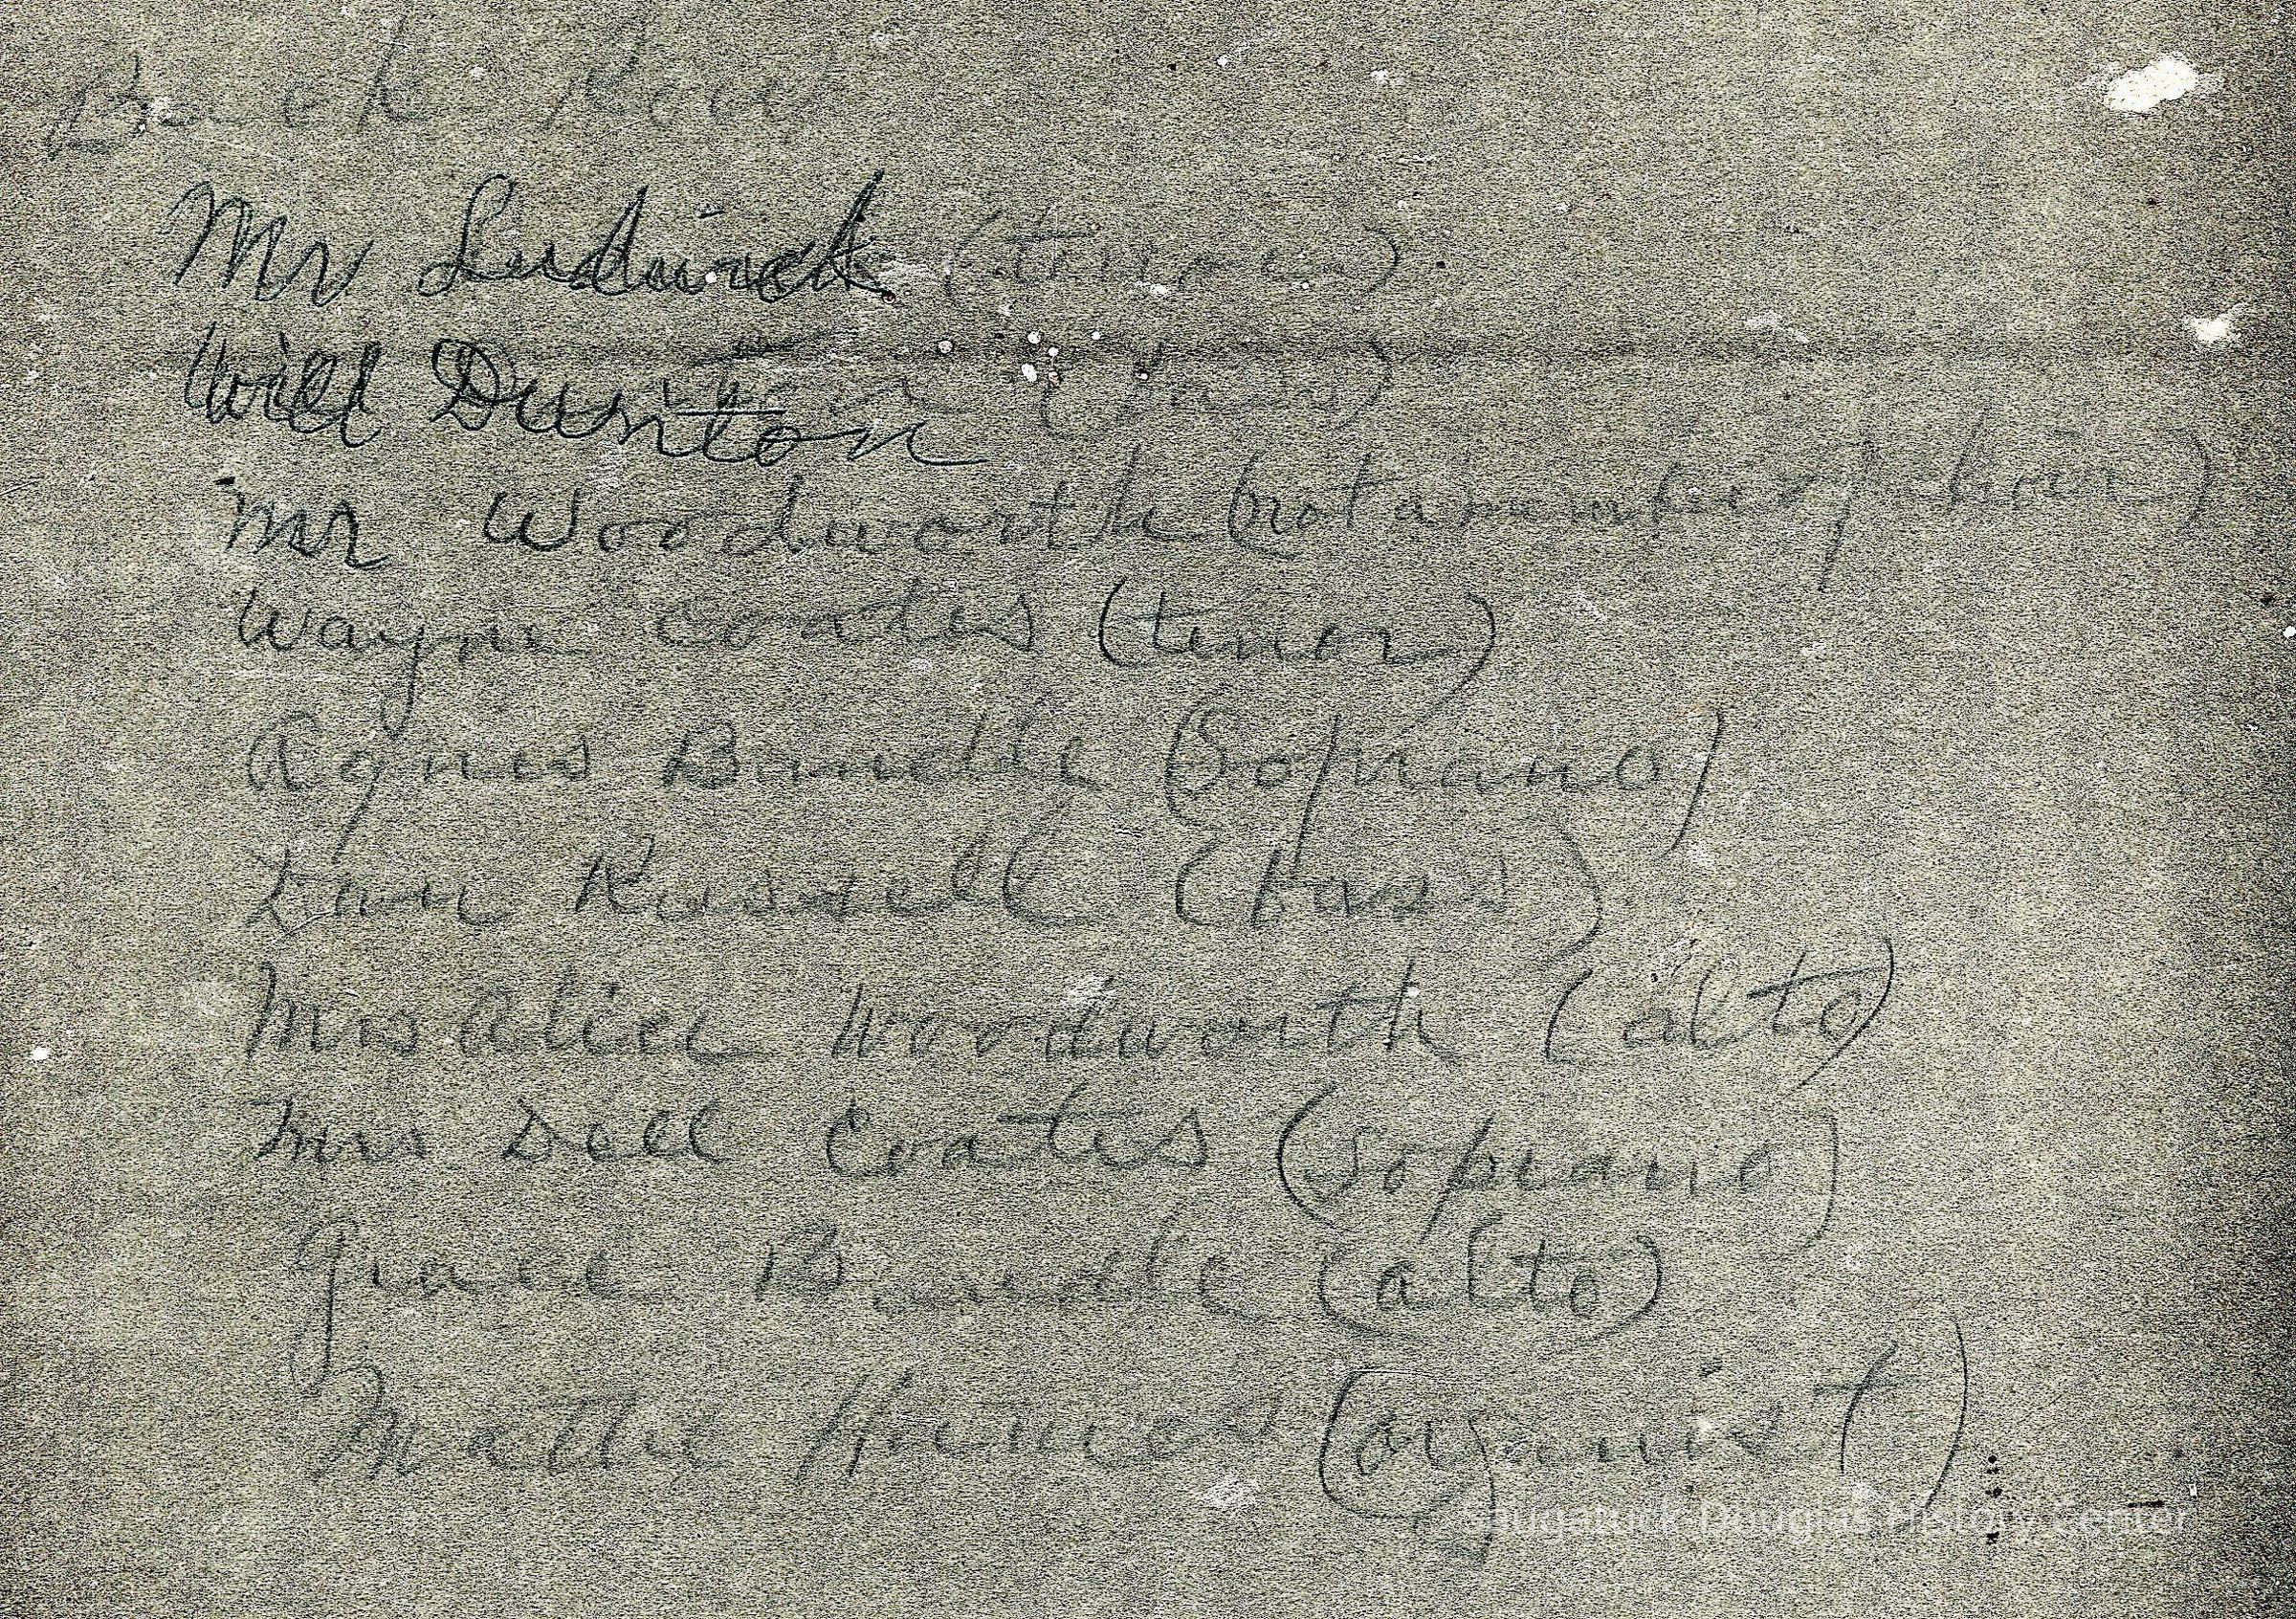 Back Row
Mr Ludwick (tenor)
Will Dunton (bass)
Mr Woodworth (not a member of choir)
Wayne Coates (tenor)
Agnes Bandle (Soprano)
Russell (bass)
Mrs Alice Woodworth (alto)
Mrs Dell Coates (Soprano)
Grace Bandle (alto)
Mette (organist)
Saugatuck-Douglas History Center